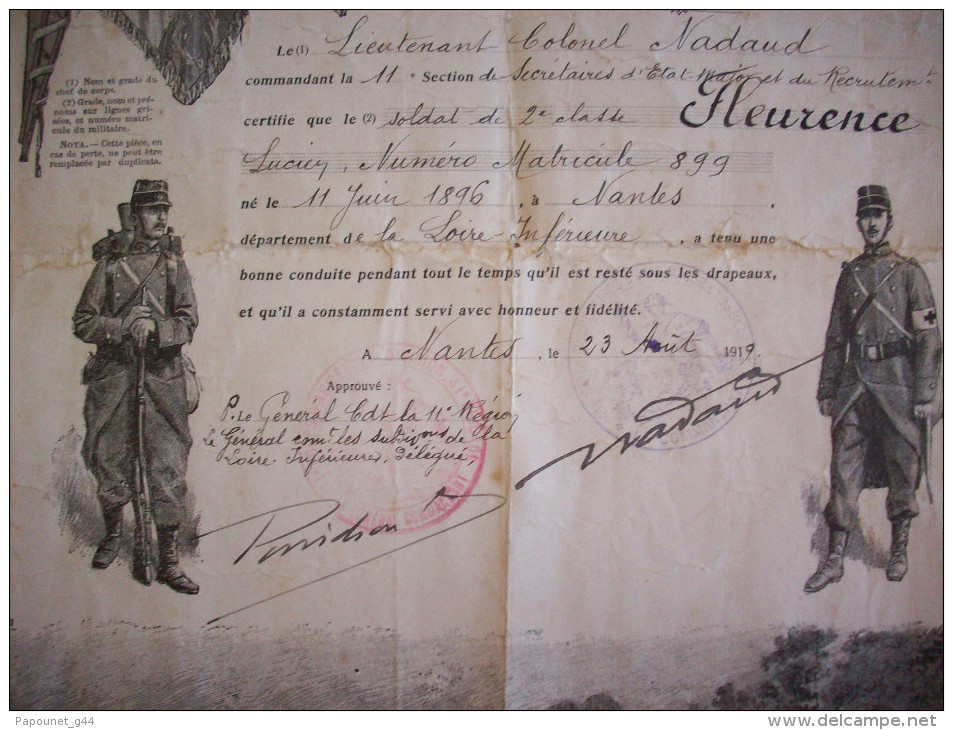 Le (1) Lieutenant Colonel Nadaud
commandant la 11e Section de Secrétaires d'Etat Major et du Recrutemt
certifie que le (2) soldat de 2e classe Fleurence
Lucien, Numéro Matricule 899
né le 11 Juin 1896, à Nantes,
département de la Loire-Inférieure, a tenu une
bonne conduite pendant tout le temps qu'il est resté sous les drapeaux,
et qu'il a constamment servi avec honneur et fidélité.
A Nantes, le 23 Août 1919.
Approuvé :
P. le Général Cdt la 11e Région
Le Général comt les subdions de la
Loire-Inférieure, Délégué,
Nadaud
(1) Nom et grade du
chef de corps.
(2) Grade, nom et pré-
noms sur lignes gri-
sées, et numéro matri-
cule du militaire.
NOTA. — Cette pièce, en
cas de perte, ne peut être
remplacée par duplicata.
Papounet_g44
www.delcampe.net